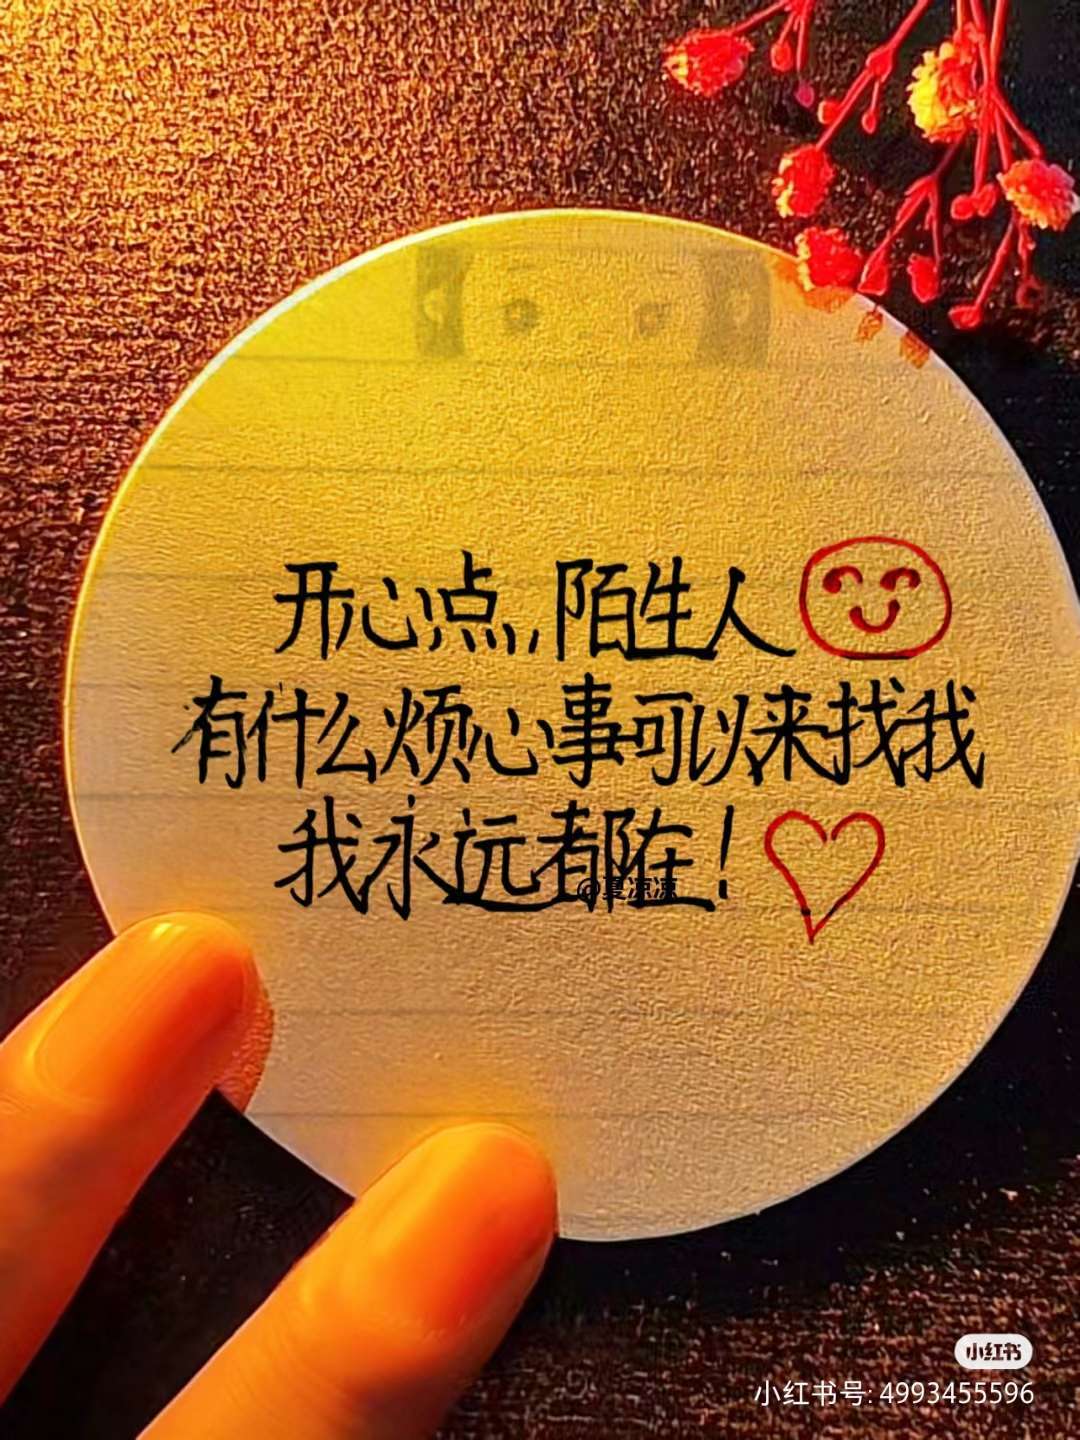 开心点,,,陌生人
有什么烦心事可以来找我
我永远都在!
@夏凉凉
小红书
小红书号: 4993455596